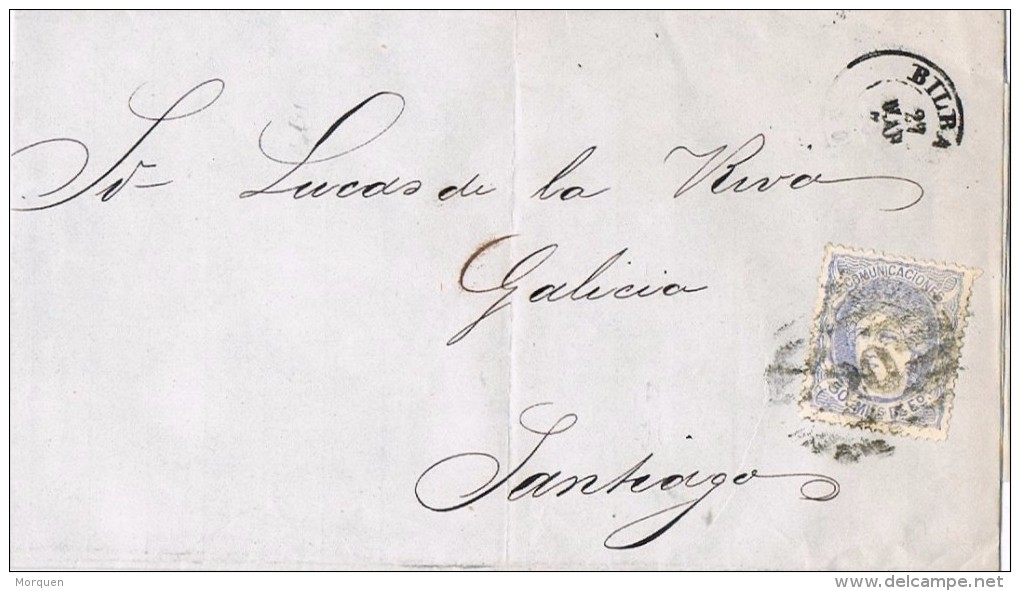 BILBA
Sr Lucas de la Riva
Galicia
COMUNICACIONES
50 MILS DE EO.
Santiago
Morquen
delcampe.net